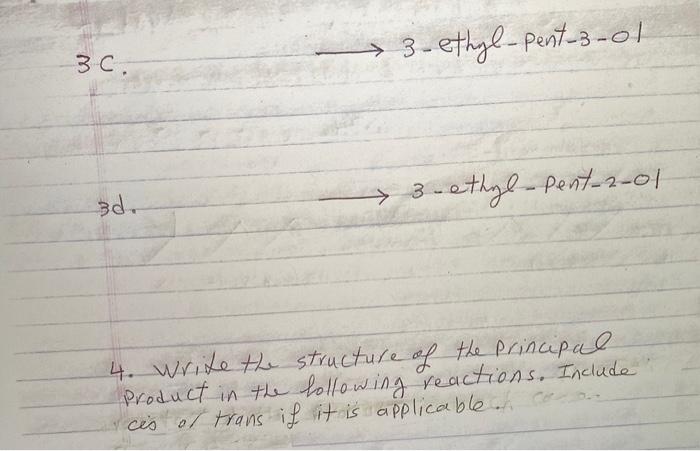 3c. → 3-ethyl-pent-3-ol
3d. → 3-ethyl-pent-2-ol
4. Write the structure of the principal
product in the following reactions. Include
cis or trans if it is applicable.